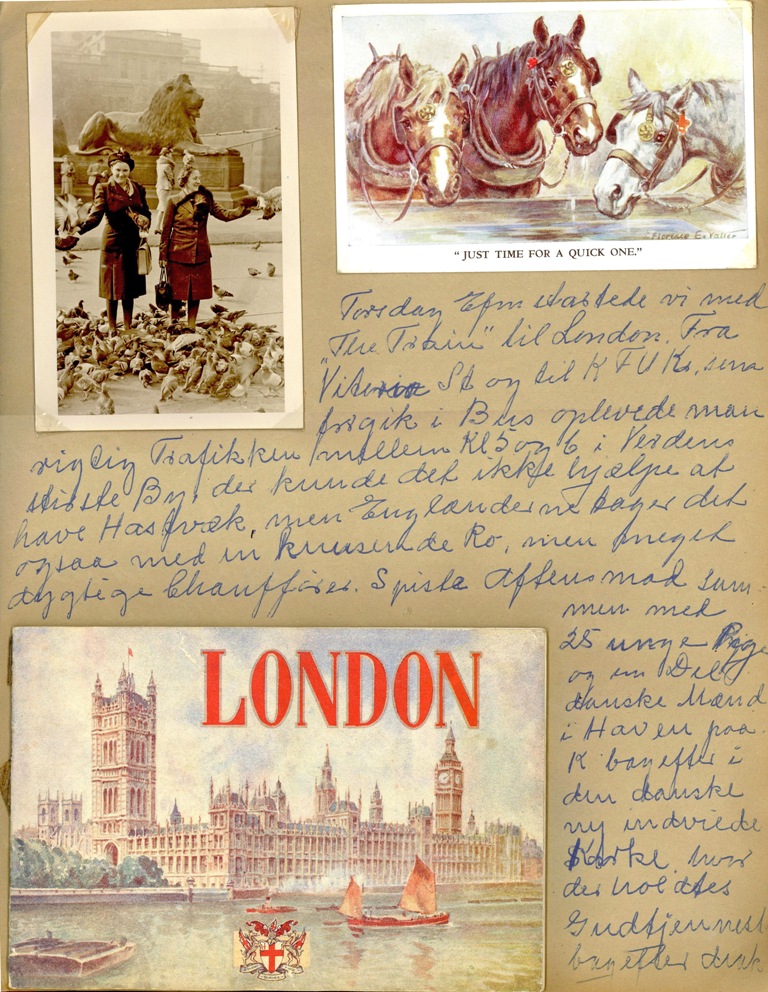 "JUST TIME FOR A QUICK ONE."
Florence E. Valter
Torsdag Efm startede vi med
„The Train" til London. Fra
St og til K F U Ks, sem
i Bus oplevede man
rigtig Trafikken mellem Kl 5 og 6 i Verdens
største By, der kunde det ikke hjælpe at
have Hastværk, men Englænderne tager det
ogsaa med en knusende Ro, men meget
dygtige Chauffører. Spiste Aftensmad sam-
men med
25 unge
og en Del
danske Mænd
i Haven paa
K bagefter i
den danske
ny indviede
Kirke, hvor
der holdtes
Gudtjennest
bagefter drak
LONDON